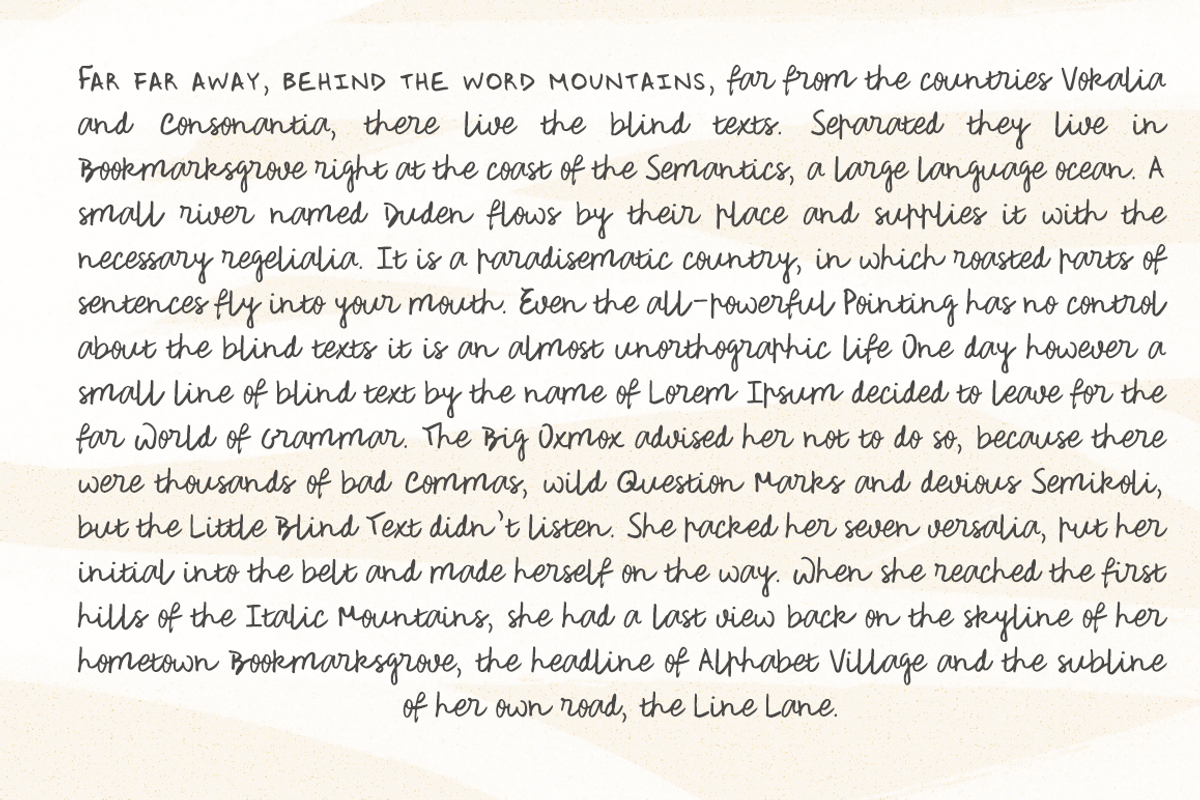 FAR FAR AWAY, BEHIND THE WORD MOUNTAINS, far from the countries Vokalia
and Consonantia, there live the blind texts. Separated they live in
Bookmarksgrove right at the coast of the Semantics, a large language ocean. A
small river named Duden flows by their place and supplies it with the
necessary regelialia. It is a paradisematic country, in which roasted parts of
sentences fly into your mouth. Even the all-powerful Pointing has no control
about the blind texts it is an almost unorthographic life One day however a
small line of blind text by the name of Lorem Ipsum decided to leave for the
far World of Grammar. The Big Oxmox advised her not to do so, because there
were thousands of bad Commas, wild Question Marks and devious Semikoli,
but the Little Blind Text didn't listen. She packed her seven versalia, put her
initial into the belt and made herself on the way. When she reached the first
hills of the Italic Mountains, she had a last view back on the skyline of her
hometown Bookmarksgrove, the headline of Alphabet Village and the subline
of her own road, the Line Lane.